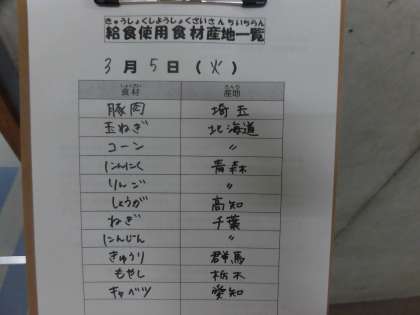 きゅうしょくしようしょくざいさんちいちらん
給食使用食材産地一覧
3月5日(火)
しょくざい さんち
食材 産地
豚肉 埼玉
玉ねぎ 北海道
コーン 〃
にんにく 青森
りんご 〃
しょうが 高知
ねぎ 千葉
にんじん 〃
きゅうり 群馬
もやし 栃木
キャベツ 愛知